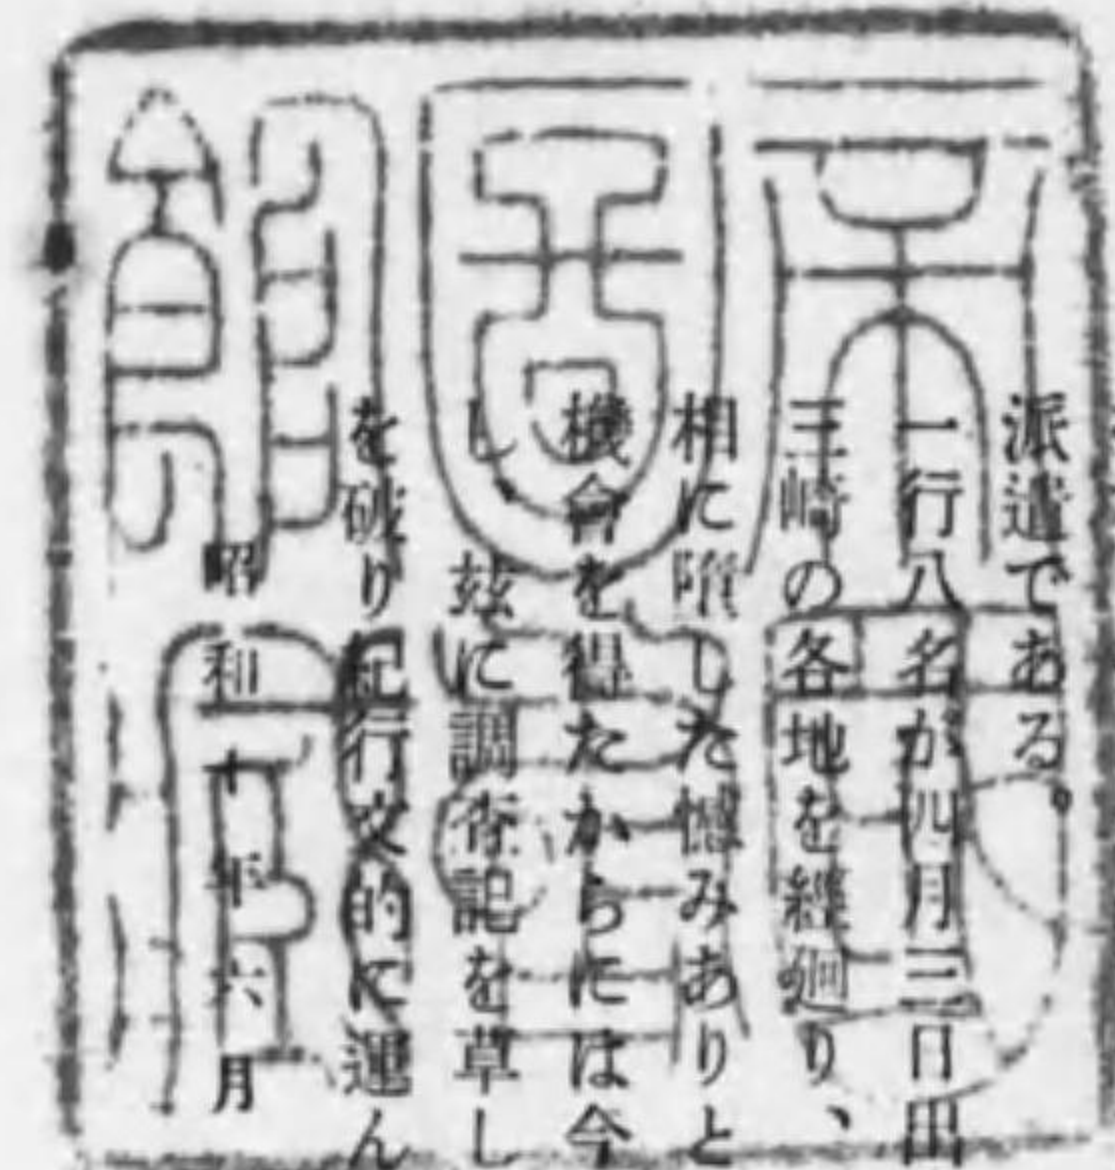 派遣である。
一行八名が四月三日出
三崎の各地を經廻り、
相に墮した憾みありと
機會を得たからには今
し、玆に調査記を草し
を破り紀行文的に運ん
昭和十年六月
帝國圖書館藏